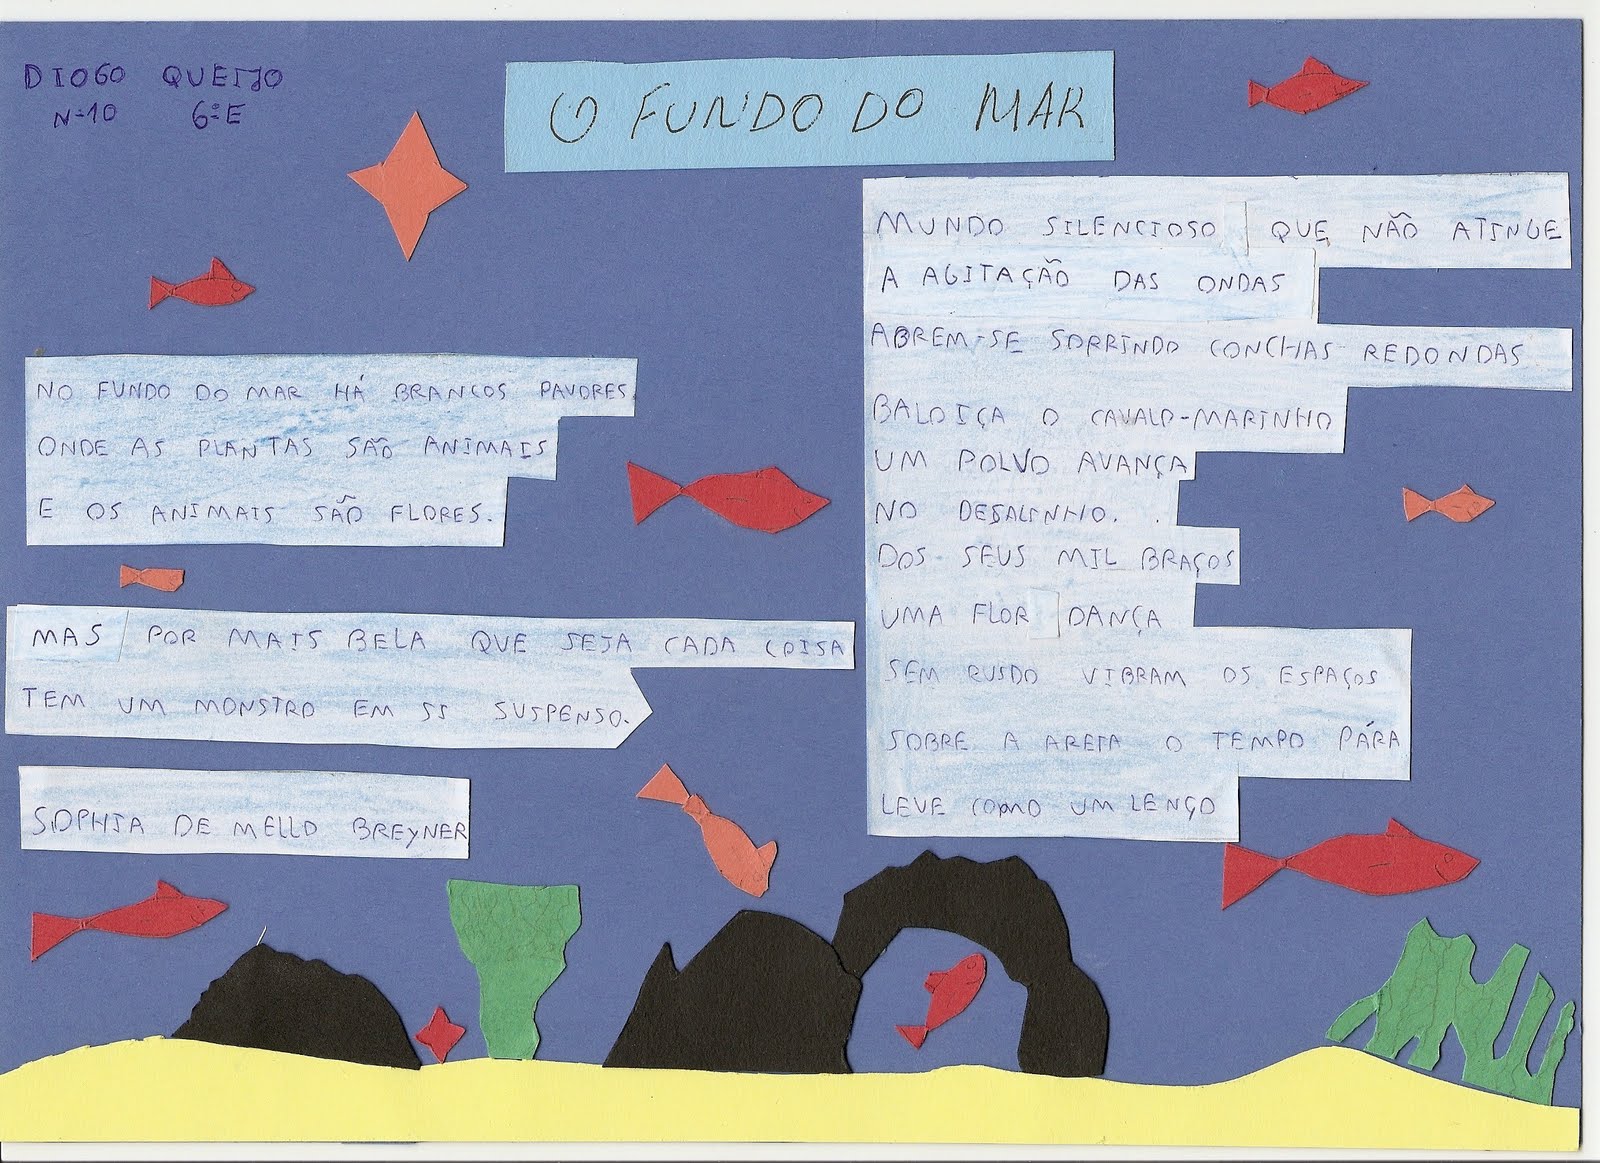 DIOGO QUEIJO
Nº10 6ºE
O FUNDO DO MAR
NO FUNDO DO MAR HÁ BRANCOS PAVORES,
ONDE AS PLANTAS SÃO ANIMAIS
E OS ANIMAIS SÃO FLORES.
MUNDO SILENCIOSO QUE NÃO ATINGE
A AGITAÇÃO DAS ONDAS
ABREM-SE SORRINDO CONCHAS REDONDAS
BALOIÇA O CAVALO-MARINHO
UM POLVO AVANÇA
NO DESALINHO.
DOS SEUS MIL BRAÇOS
UMA FLOR DANÇA
SEM RUSDO VIBRAM OS ESPAÇOS
SOBRE A AREIA O TEMPO PÁRA
LEVE COMO UM LENÇO
MAS POR MAIS BELA QUE SEJA CADA COISA
TEM UM MONSTRO EM SS SUSPENSO.
SOPHIA DE MELLO BREYNER